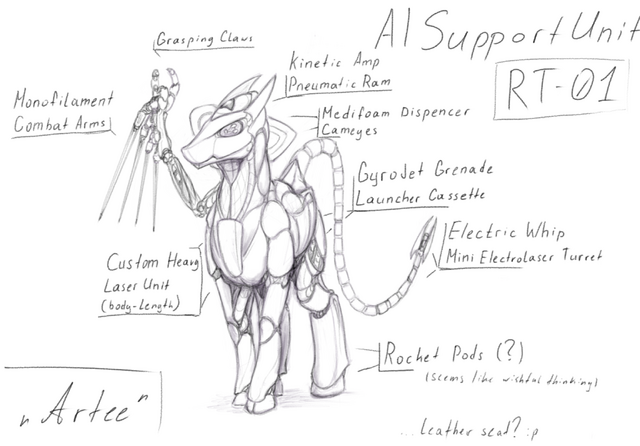 AI Support Unit
RT-01
Grasping Claws
Kinetic Amp
Pneumatic Ram
Monofilament
Combat Arms
Medifoam Dispencer
Cameyes
GyroJet Grenade
Launcher Cassette
Electric Whip
Mini Electrolaser Turret
Custom Heavy
Laser Unit
(body-Length)
Rocket Pods (?)
(seems like wishful thinking)
"Artee"
...Leather seat? :p